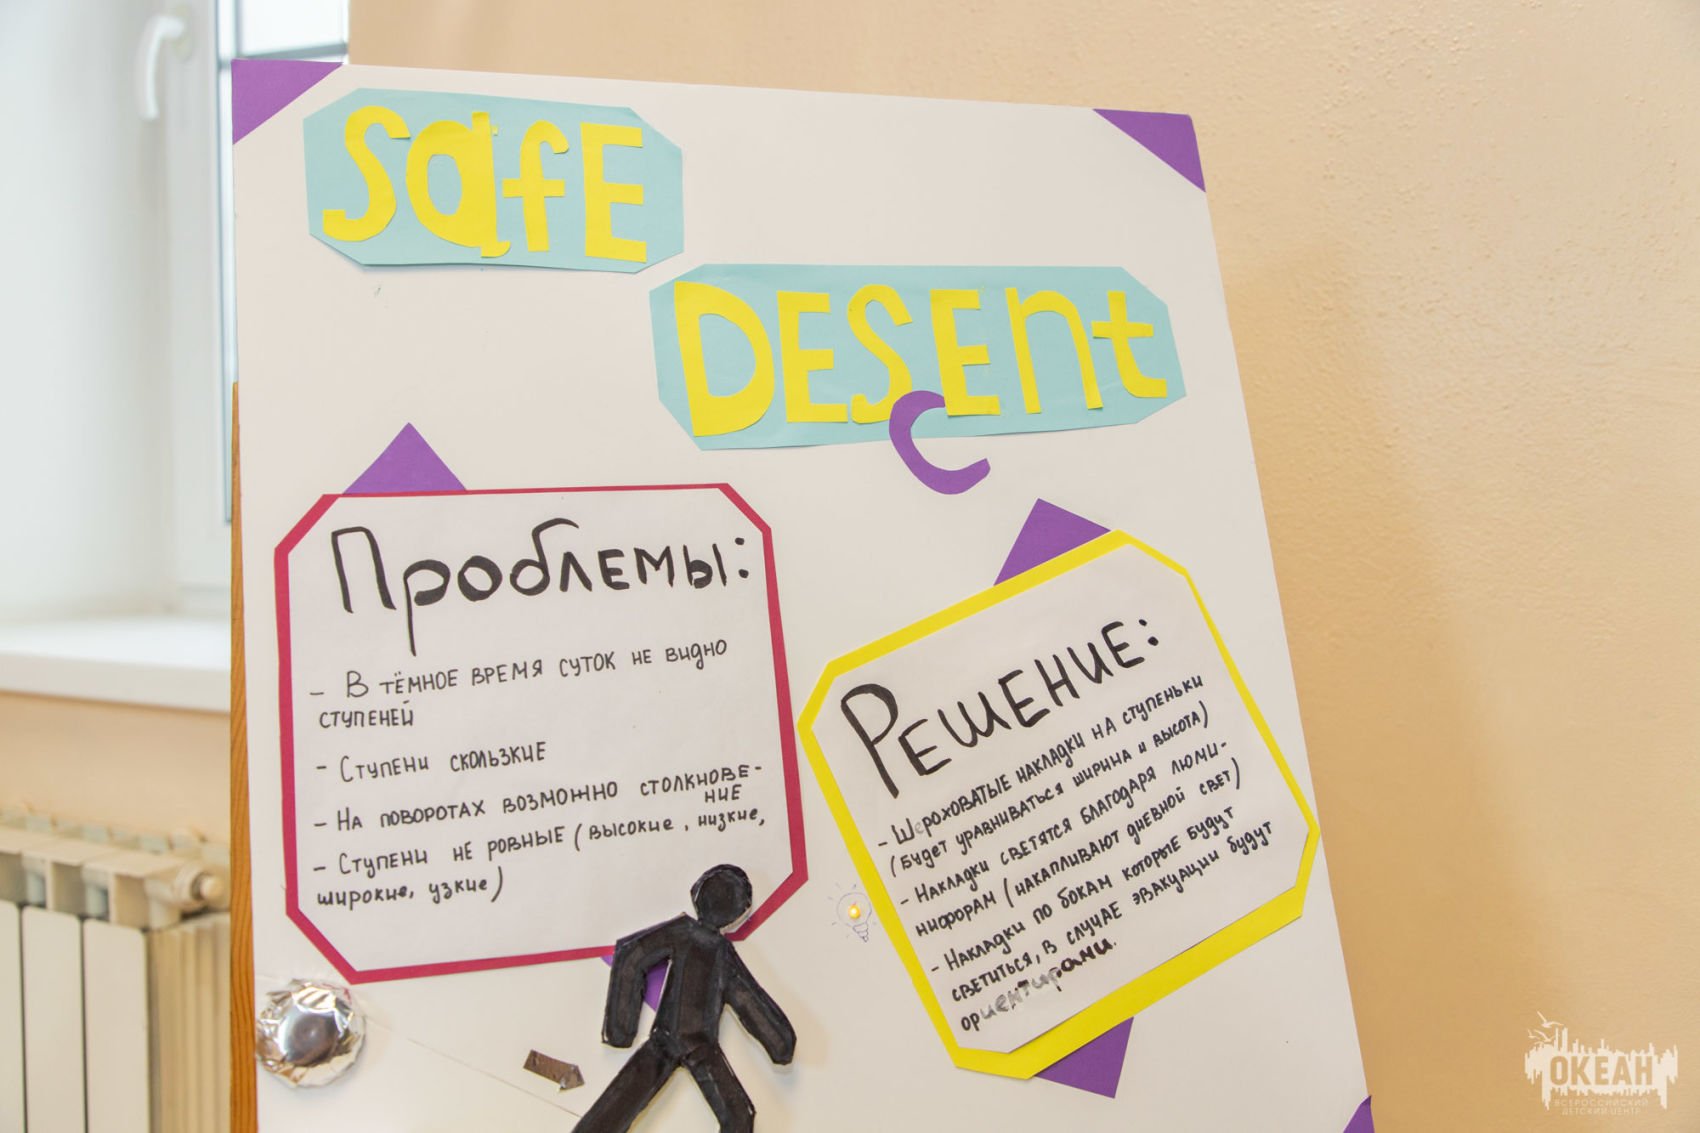 SafE
DESEnt
C
Проблемы:
- В тёмное время суток не видно
ступеней
- Ступени скользкие
- На поворотах возможно столкнове-
ние
- Ступени не ровные (высокие, низкие,
широкие, узкие)
Решение:
- Шероховатые накладки на ступеньки
(будет уравниваться ширина и высота)
- Накладки светятся благодаря люми-
нифорам (накапливают дневной свет)
- Накладки по бокам которые будут
светиться, в случае эвакуации будут
ориентирами.
ОКЕАН
ВСЕРОССИЙСКИЙ
ДЕТСКИЙ ЦЕНТР